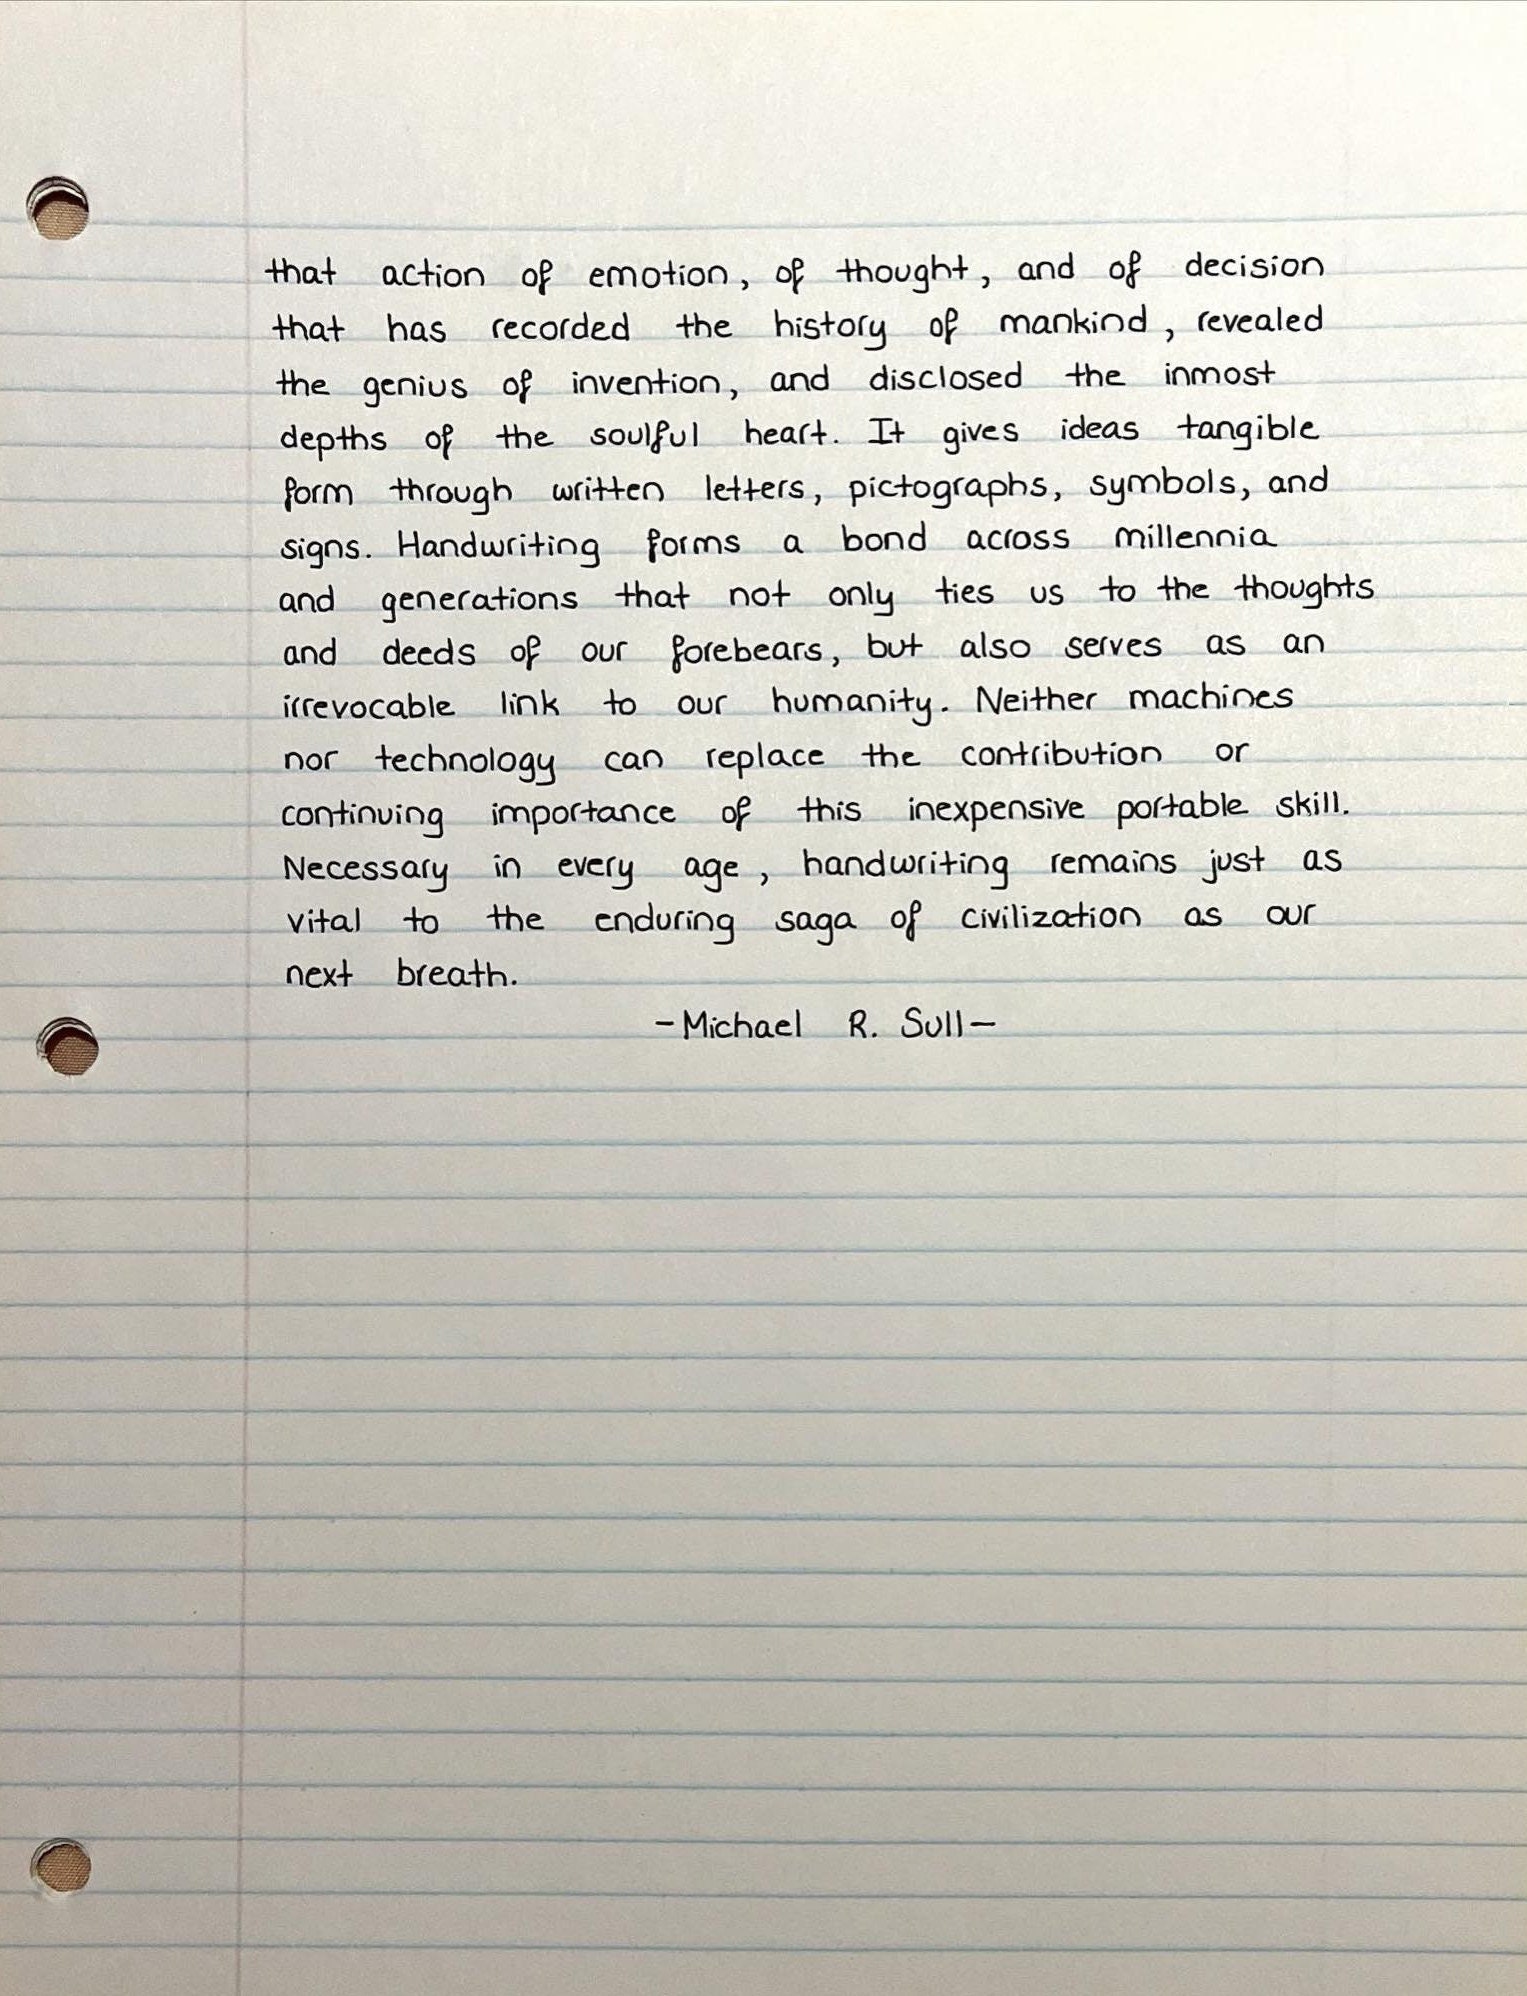 that action of emotion, of thought, and of decision
that has recorded the history of mankind, revealed
the genius of invention, and disclosed the inmost
depths of the soulful heart. It gives ideas tangible
form through written letters, pictographs, symbols, and
signs. Handwriting forms a bond across millennia
and generations that not only ties us to the thoughts
and deeds of our forebears, but also serves as an
irrevocable link to our humanity. Neither machines
nor technology can replace the contribution or
continuing importance of this inexpensive portable skill.
Necessary in every age, handwriting remains just as
vital to the enduring saga of civilization as our
next breath.
-Michael R. Sull-